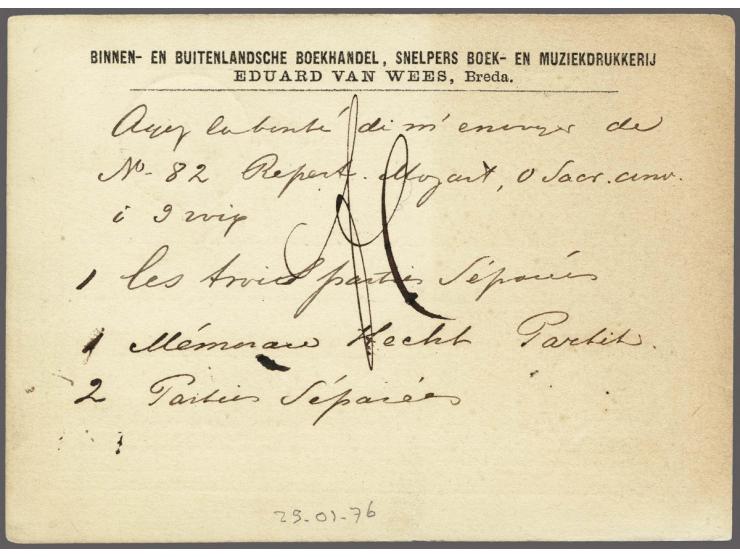 BINNEN- EN BUITENLANDSCHE BOEKHANDEL, SNELPERS BOEK- EN MUZIEKDRUKKERIJ
EDUARD VAN WEES, Breda.
Ayez la bonté di m'envoyer de
No. 82 Repert. Mozart, O Sacr. conv.
à 3 voix
1 les trois parties Séparées
1 Hecht Partit.
2 Parties Séparées
29-01-76